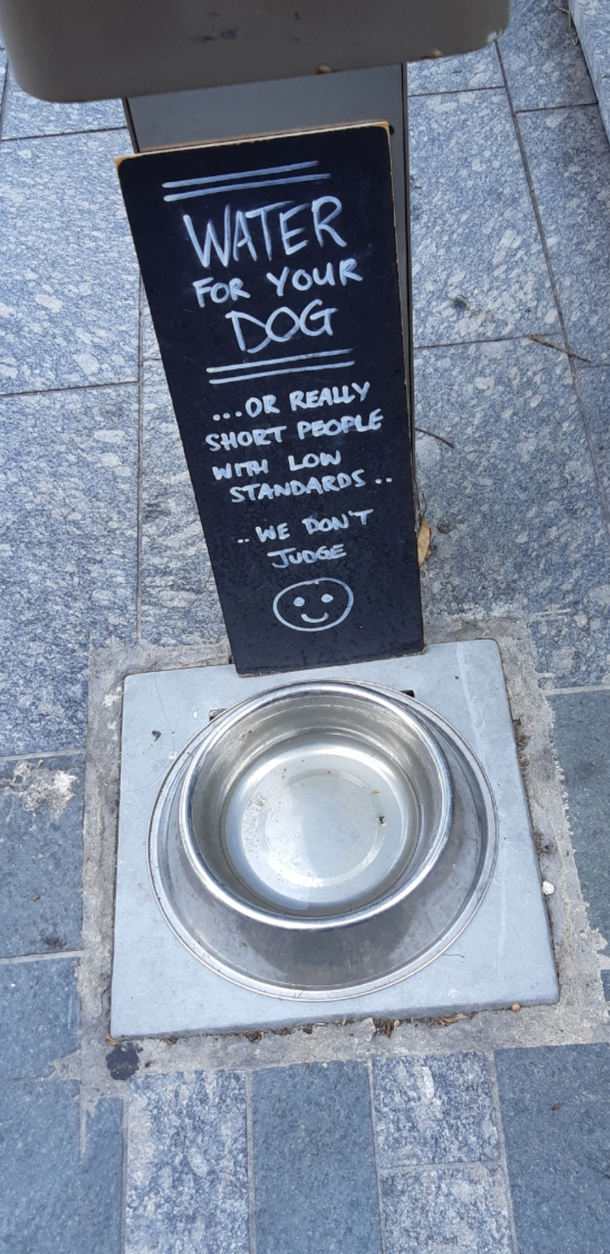 WATER
FOR YOUR
DOG
...OR REALLY
SHORT PEOPLE
WITH LOW
STANDARDS..
..WE DON'T
JUDGE